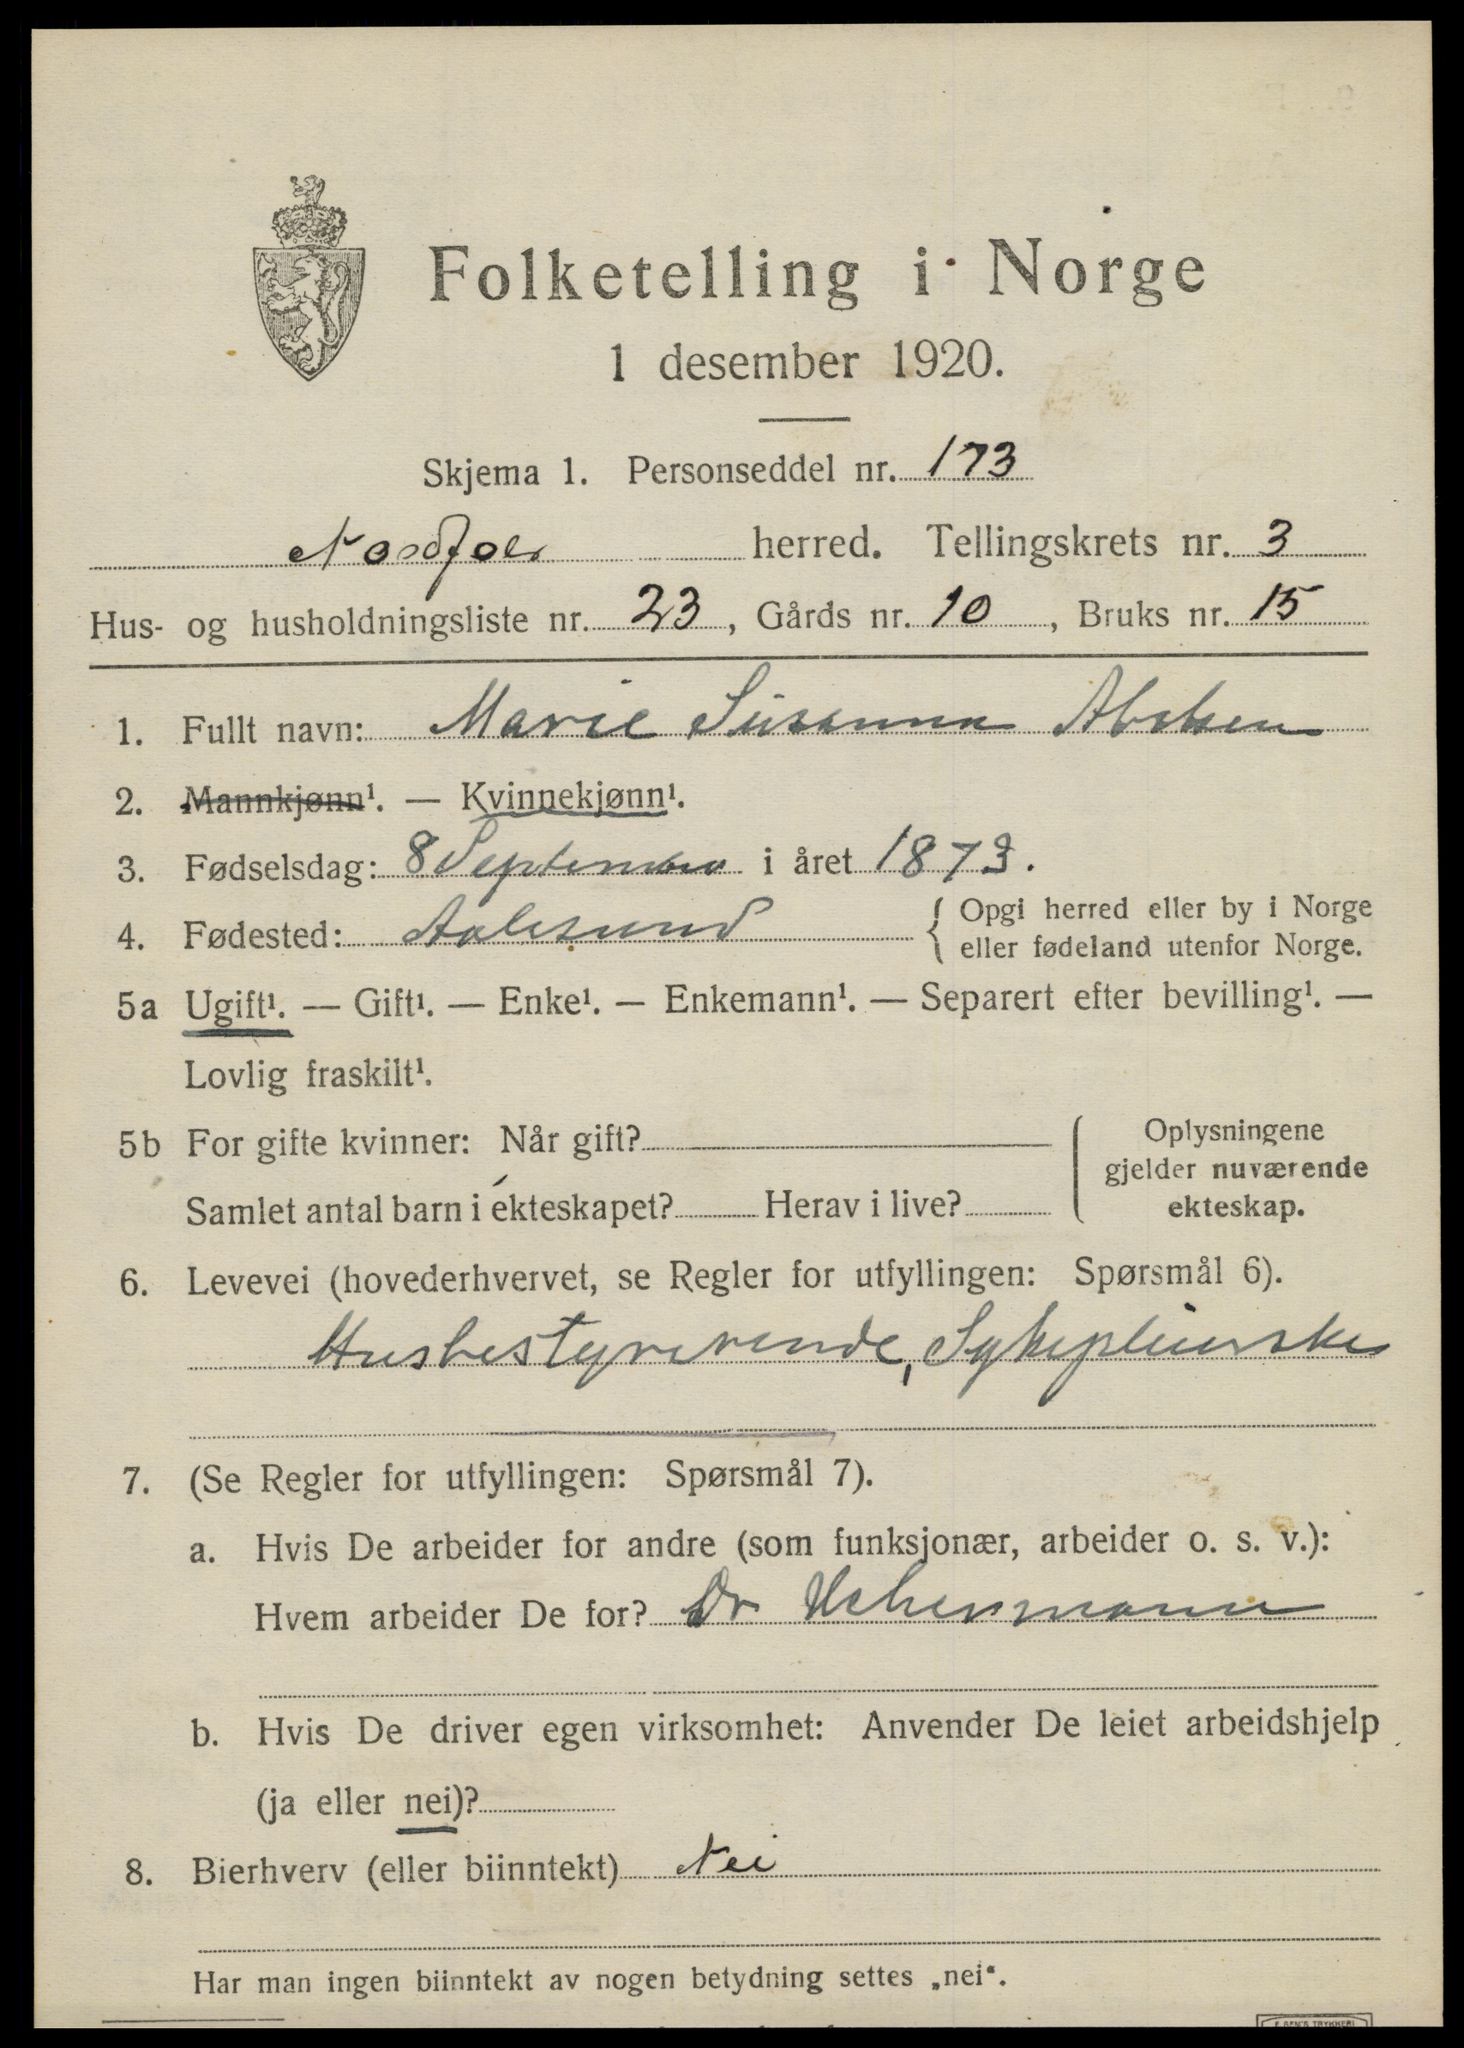 Folketelling i Norge
1 desember 1920.
Skjema 1. Personseddel nr. 173
herred. Tellingskrets nr. 3
Hus- og husholdningsliste nr. 23, Gårds nr. 10, Bruks nr. 15
1. Fullt navn: Marie Susanna
2. Mannkjønn¹. — Kvinnekjønn¹.
3. Fødselsdag: 8 September i året 1873.
4. Fødested: Aalesund { Opgi herred eller by i Norge
eller fødeland utenfor Norge.
5a Ugift¹. — Gift¹. — Enke¹. — Enkemann¹. — Separert efter bevilling¹. —
Lovlig fraskilt¹.
5b For gifte kvinner: Når gift?
Samlet antal barn i ekteskapet? Herav i live?
Oplysningene
gjelder nuværende
ekteskap.
6. Levevei (hovederhvervet, se Regler for utfyllingen: Spørsmål 6).
Husbestyrerende, Sykepleierske
7. (Se Regler for utfyllingen: Spørsmål 7).
a. Hvis De arbeider for andre (som funksjonær, arbeider o. s. v.):
Hvem arbeider De for? Dr Uchermann
b. Hvis De driver egen virksomhet: Anvender De leiet arbeidshjelp
(ja eller nei)?
8. Bierhverv (eller biinntekt) Nei
Har man ingen biinntekt av nogen betydning settes „nei“.